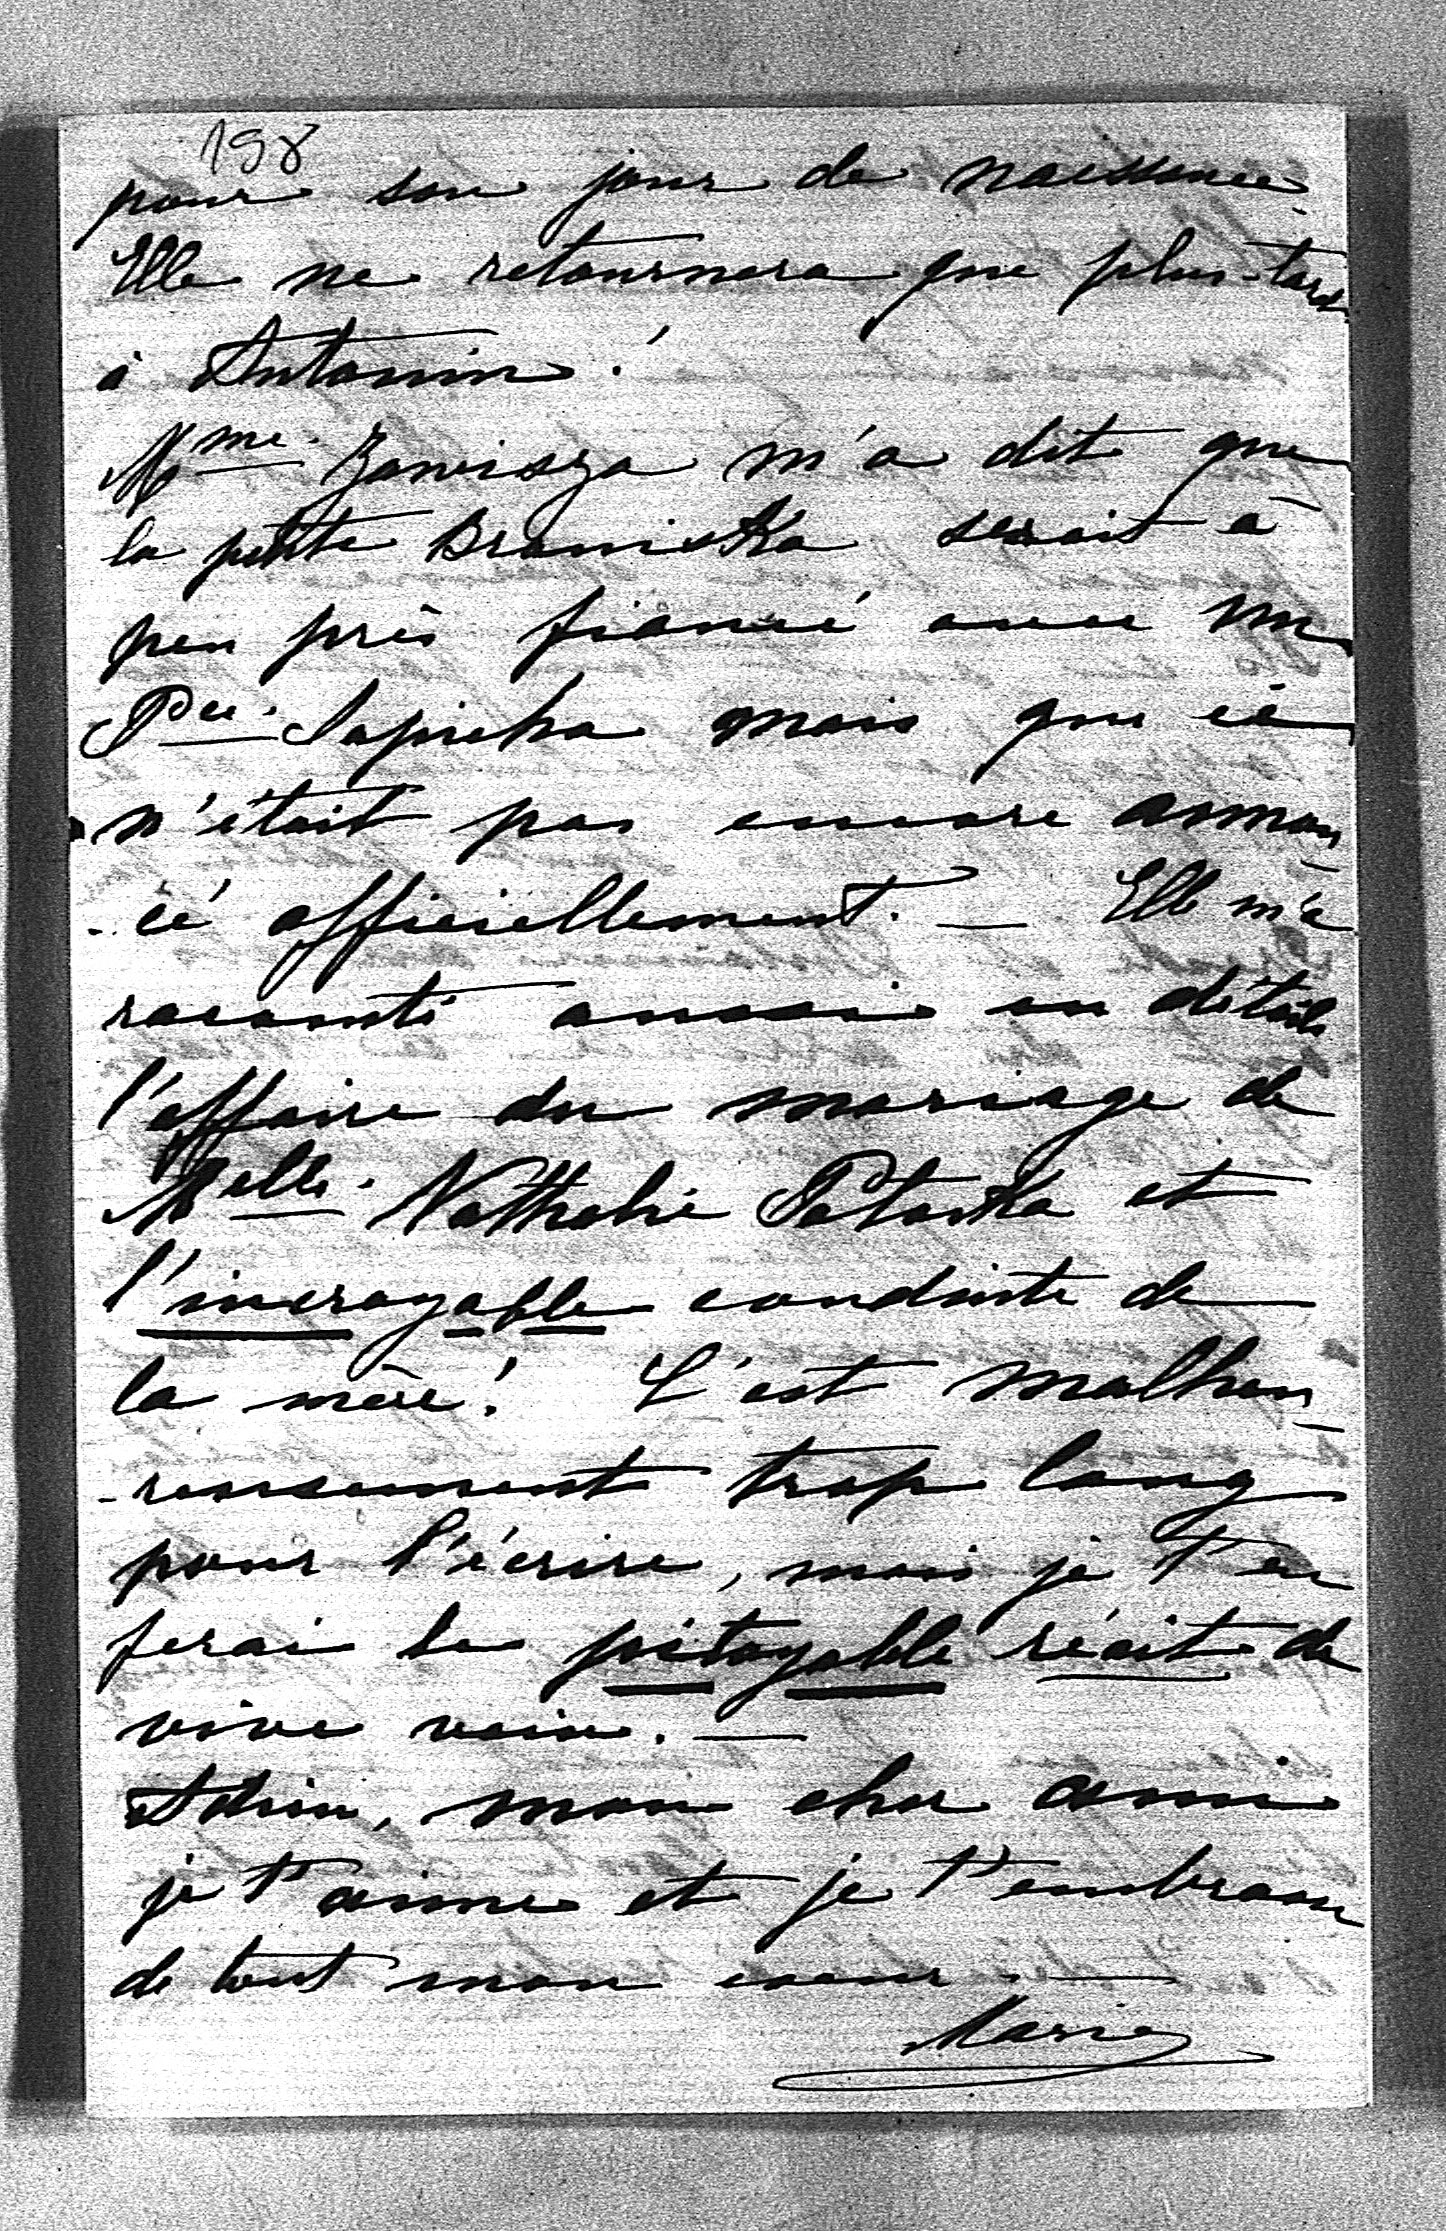 198
pour son jour de naissance
Elle ne retournera que plus-tard
à Antonin!
Mme. Zawisza m'a dit que
la petite Braniska serait à
peu près fiancé avec un
Pce. Sapieha mais que ce
n'était pas encore annon-
-cé officiellement. — Elle m'a
raconté aussi en détails
l'affaire du mariage de
Melle. Nathalie Potoska et
l'incroyable conduite de
la mère! C'est malheu-
-reusement trop long
pour l'écrire, mais je t'en
ferai le pitoyable récit de
vive voix. —
Adieu, mon cher ami
je t'aime et je t'embrasse
de tout mon coeur. —
Marie